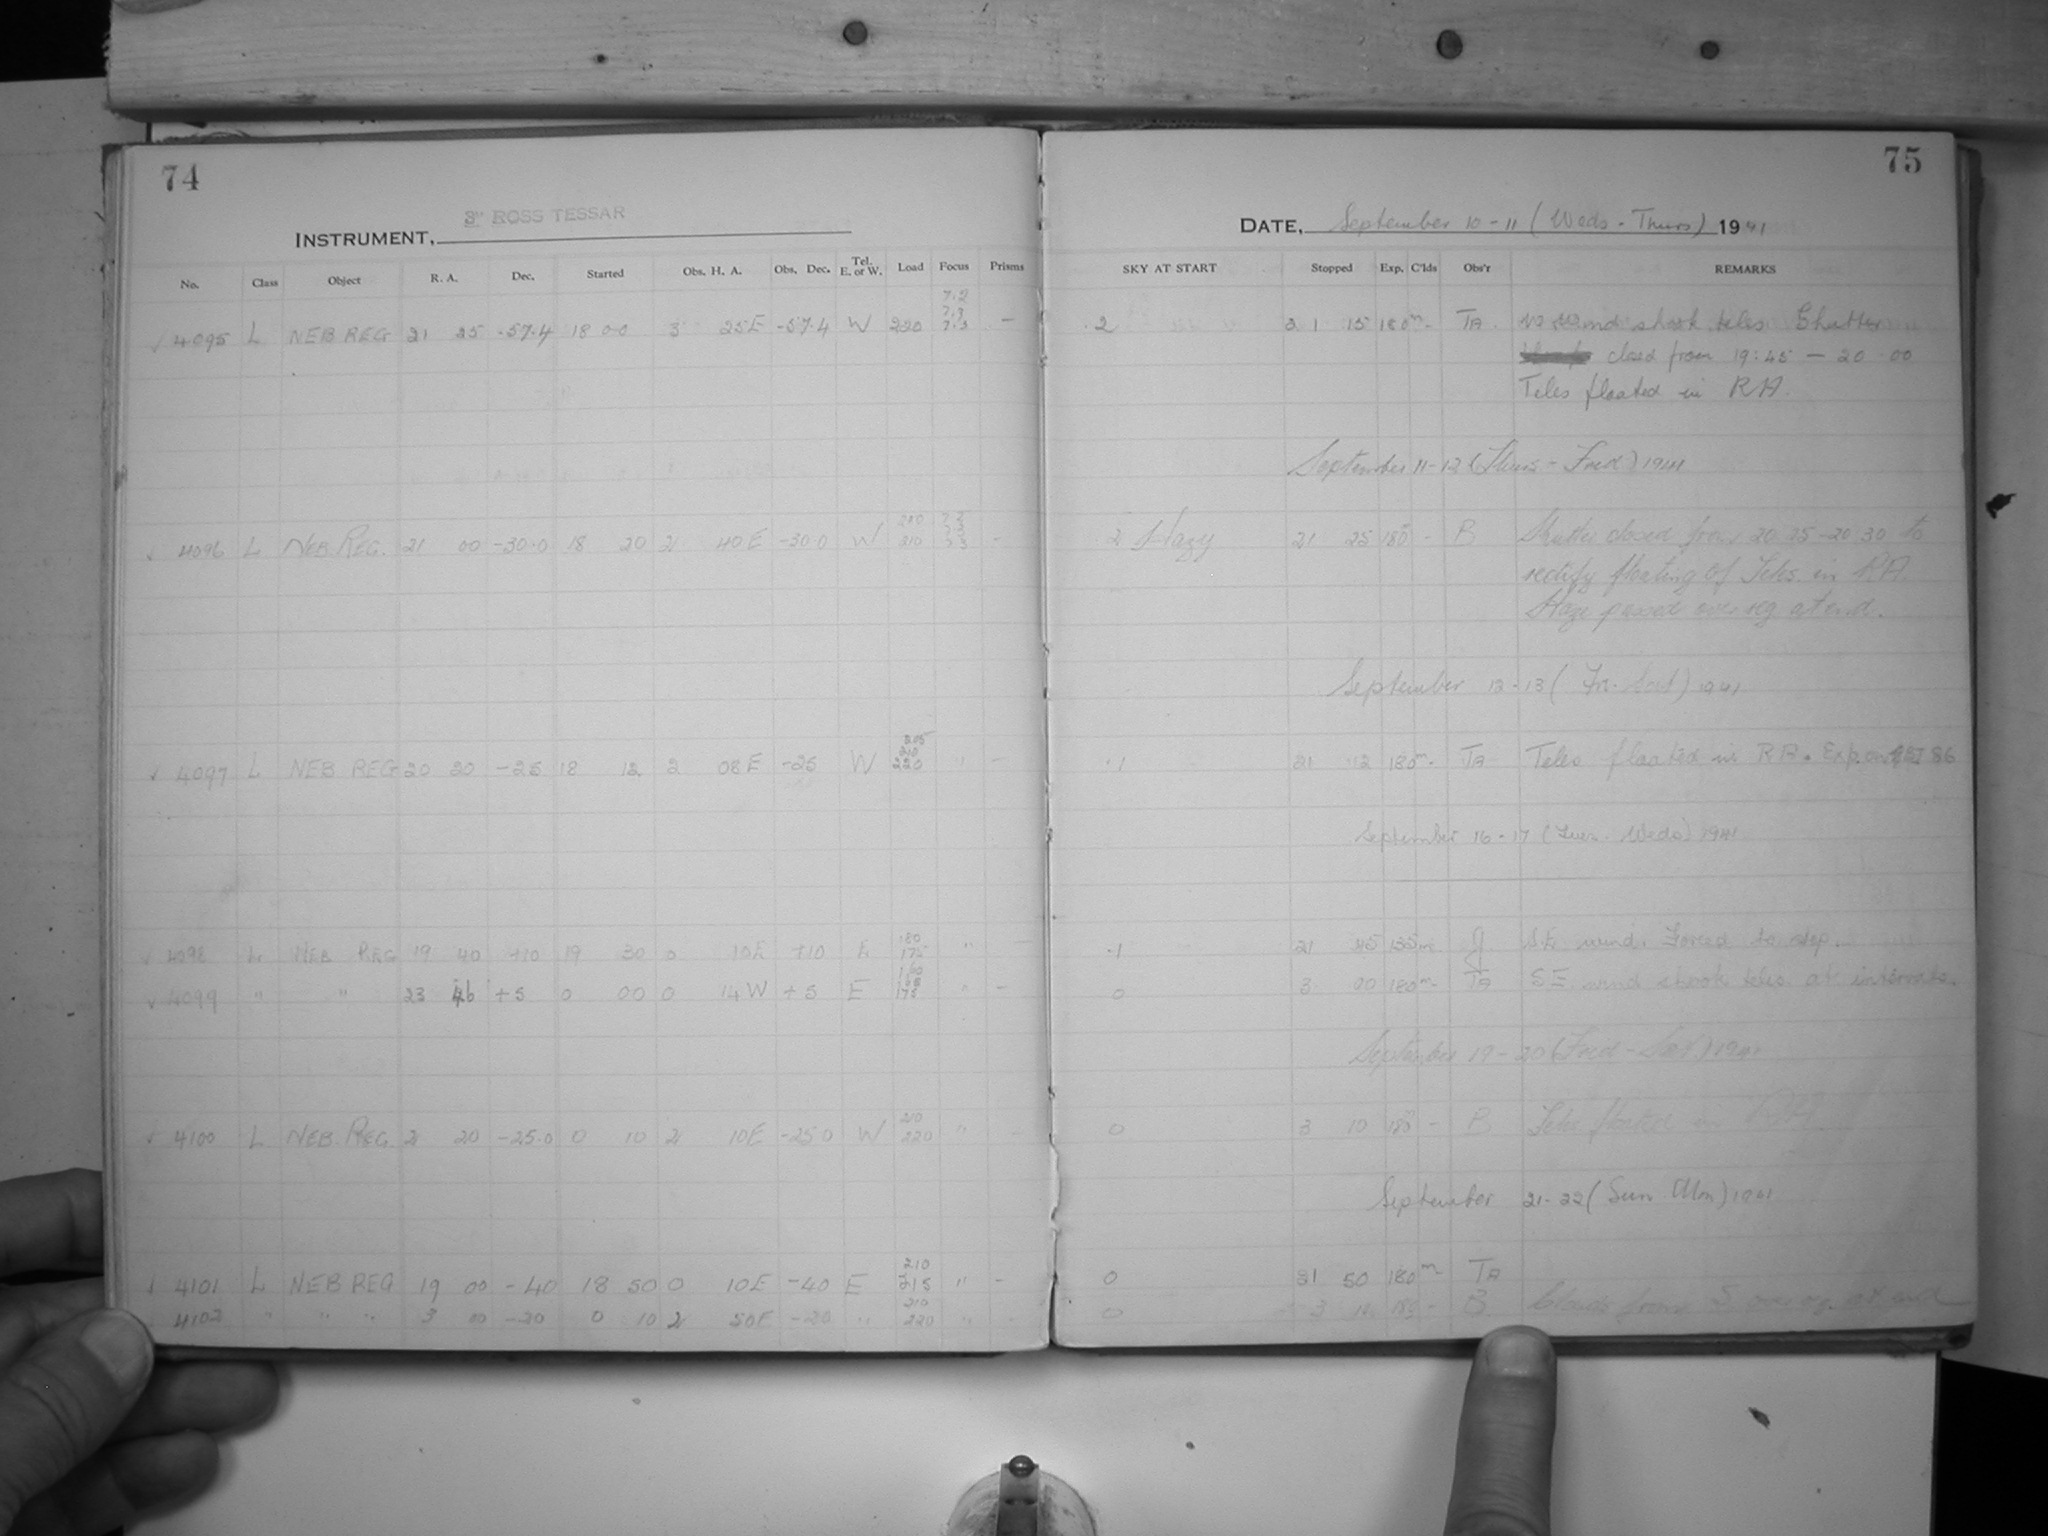 74
3" ROSS TESSAR
INSTRUMENT,
No. Class Object R. A. Dec. Started Obs. H. A. Obs. Dec. Tel. E. or W. Load Focus Prisms
7.2
7.3
4095 L NEB REG 21 25 -57.4 18 00 3 25E -57.4 W 220 7.3 -
4096 L NEB REG. 21 00 -30.0 18 20 2 40E -30.0 W 210 -
205
210
4097 L NEB REG 20 20 -25 18 12 2 08E -25 W 220 " -
180
4098 L NEB REG 19 40 +10 19 30 0 10E +10 E 175 " -
4099 " " 23 46 +5 0 00 0 14W +5 E 175 " -
210
4100 L NEB. REG. 2 20 -25.0 0 10 2 10E -25.0 W 220 " -
210
4101 L NEB REG 19 00 -40 18 50 0 10E -40 E 215 " -
210
4102 " " " 3 00 -20 0 10 2 50E -20 " 220 " -
75
DATE, September 10-11 (Weds - Thurs) 1941
SKY AT START Stopped Exp. C'lds Obs'r REMARKS
2 21 15 180m - TA. wind shook teles. Shutter
closed from 19:45 - 20.00
Teles floated in RA.
September 11-12 (Thurs - Fred) 1941
2 Hazy 21 25 180m - B Shutter closed from 20.25-20.30 to
rectify floating of Teles. in RA.
Haze passed over reg. at end.
September 12-13 (Fri - Sat) 1941
1 21 12 180m - TA Teles floated in RA. Exp. on 86
September 16-17 (Tues - Weds) 1941
1 21 45 135m J S.E. wind. Forced to stop.
0 3 00 180m - TA SE wind shook teles. at intervals.
September 19-20 (Fred - Sat.) 1941
0 3 10 180m - B Teles floated in RA
September 21-22 (Sun Mon) 1941
0 21 50 180m - TA
0 3 180 - B Clouds from S over reg. at end